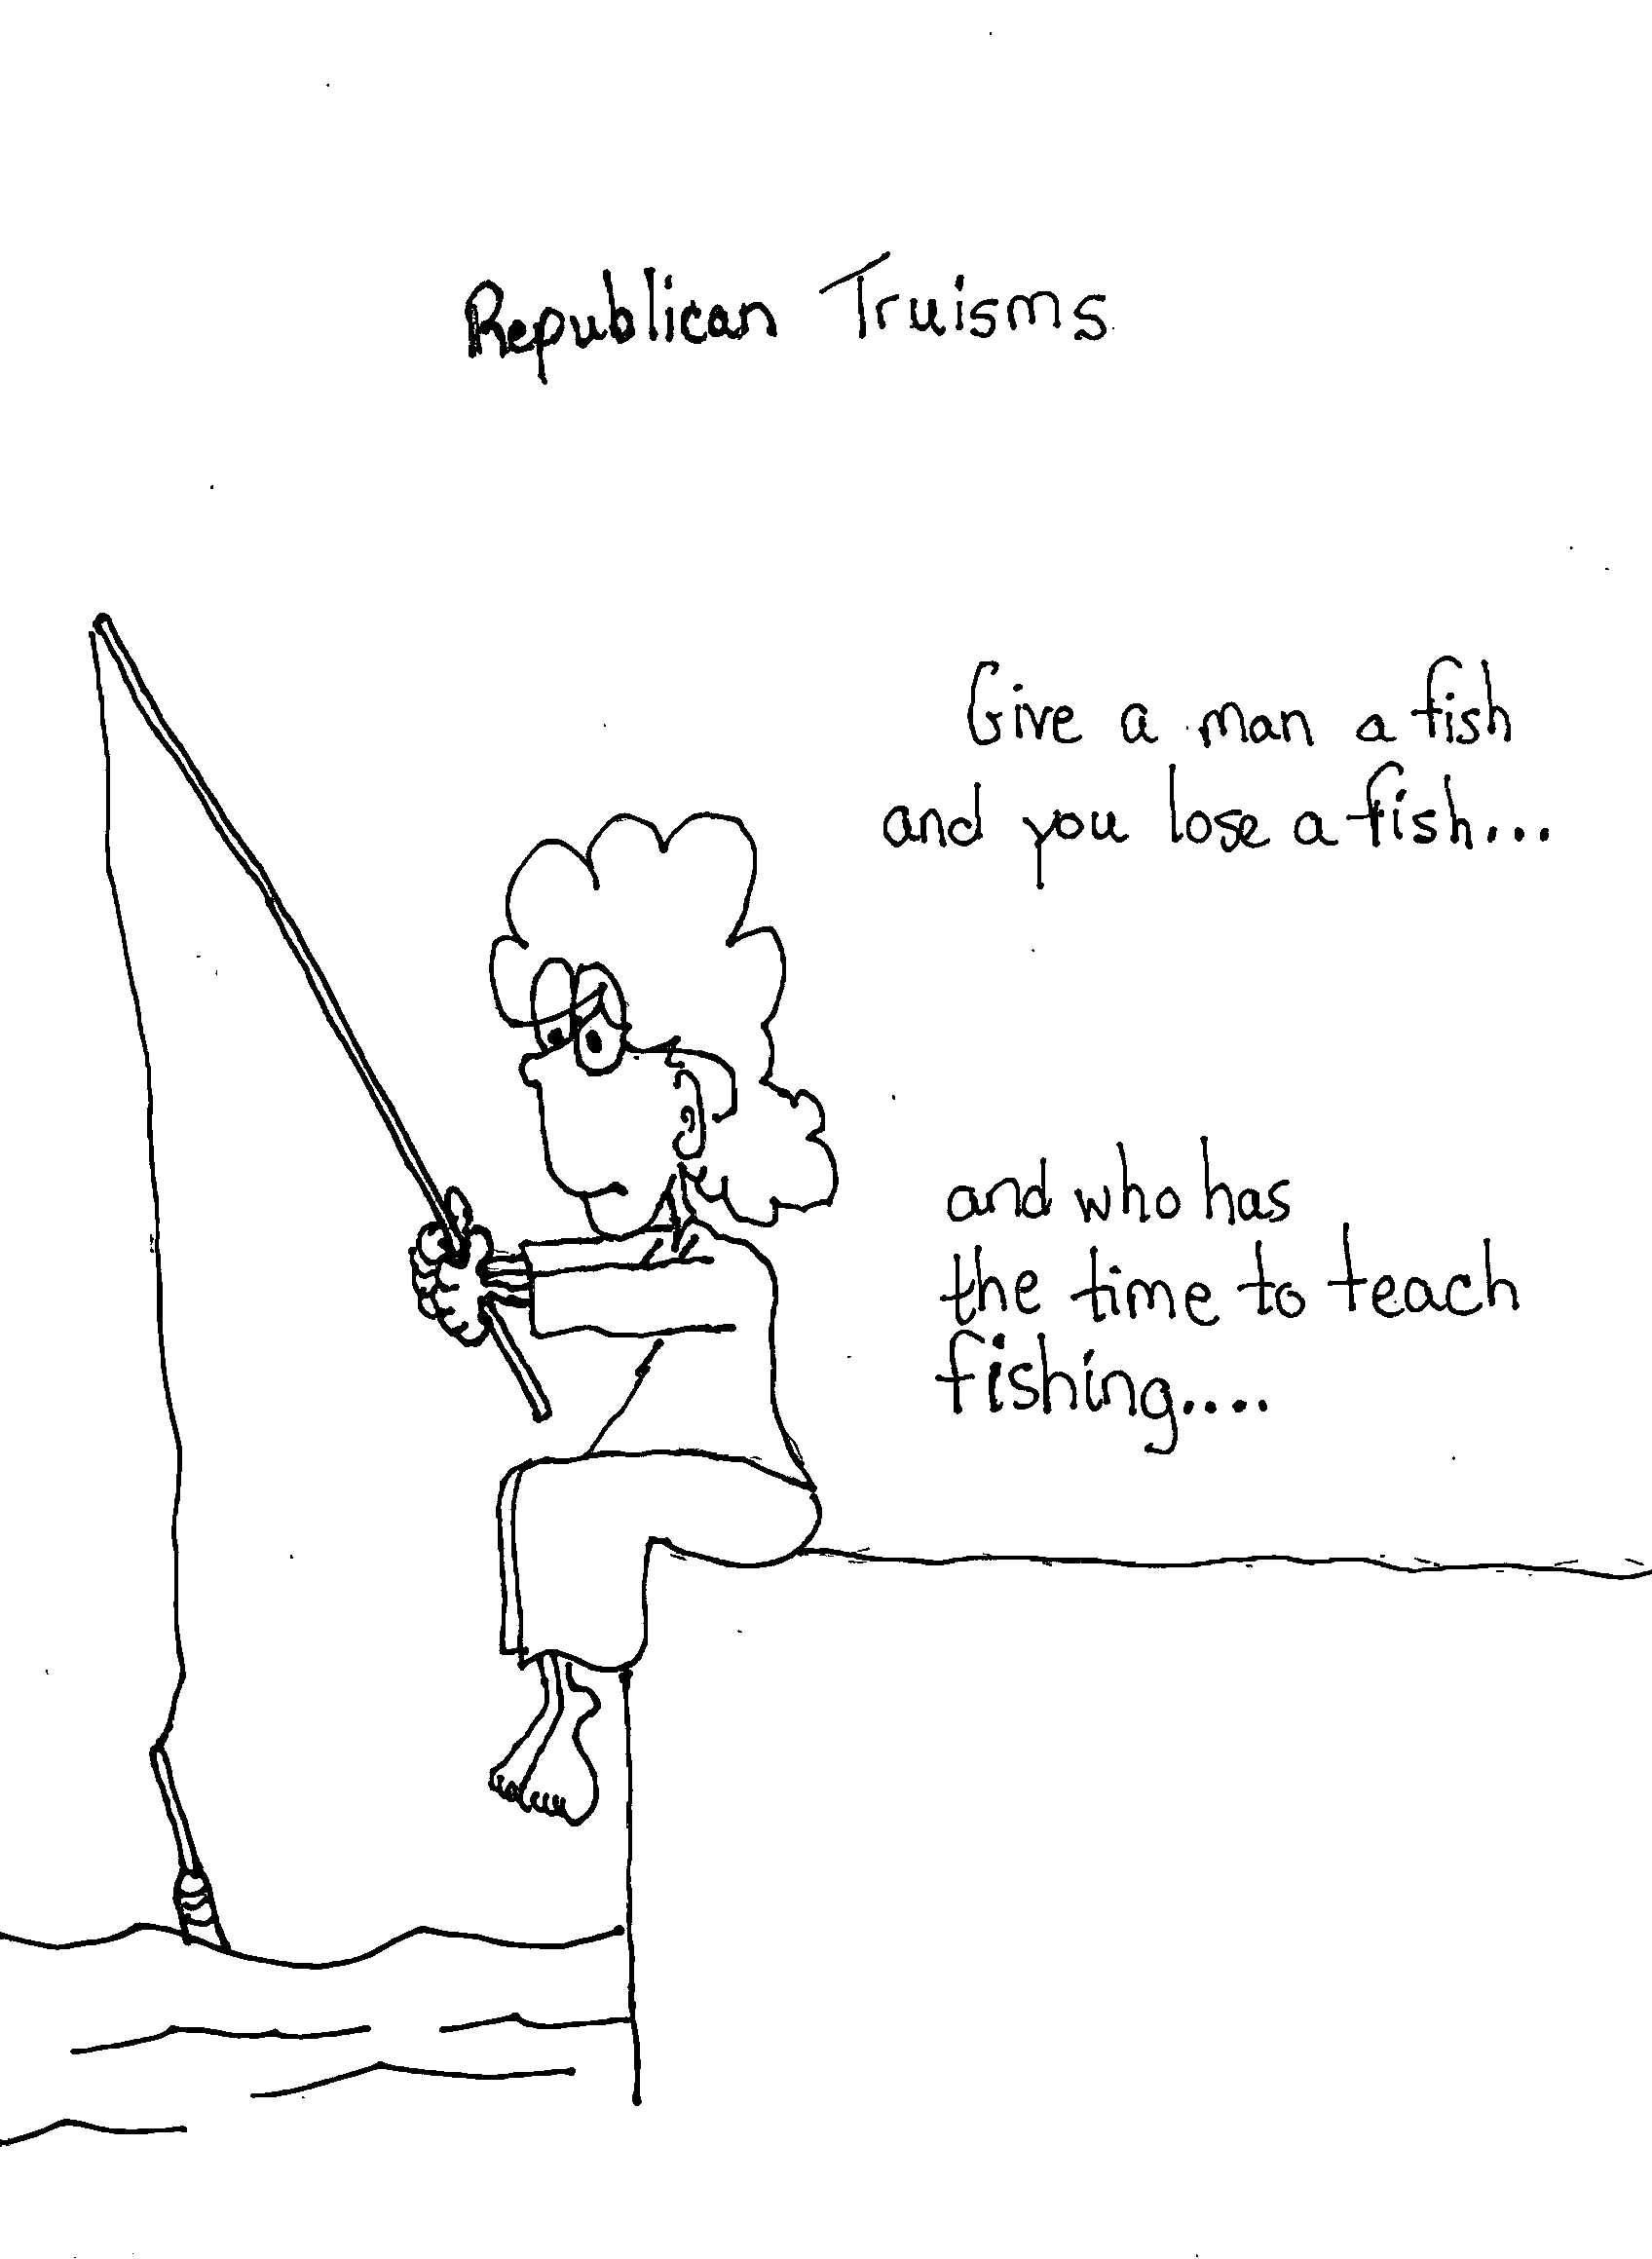 Republican Truisms
Give a man a fish
and you lose a fish...
and who has
the time to teach
fishing....